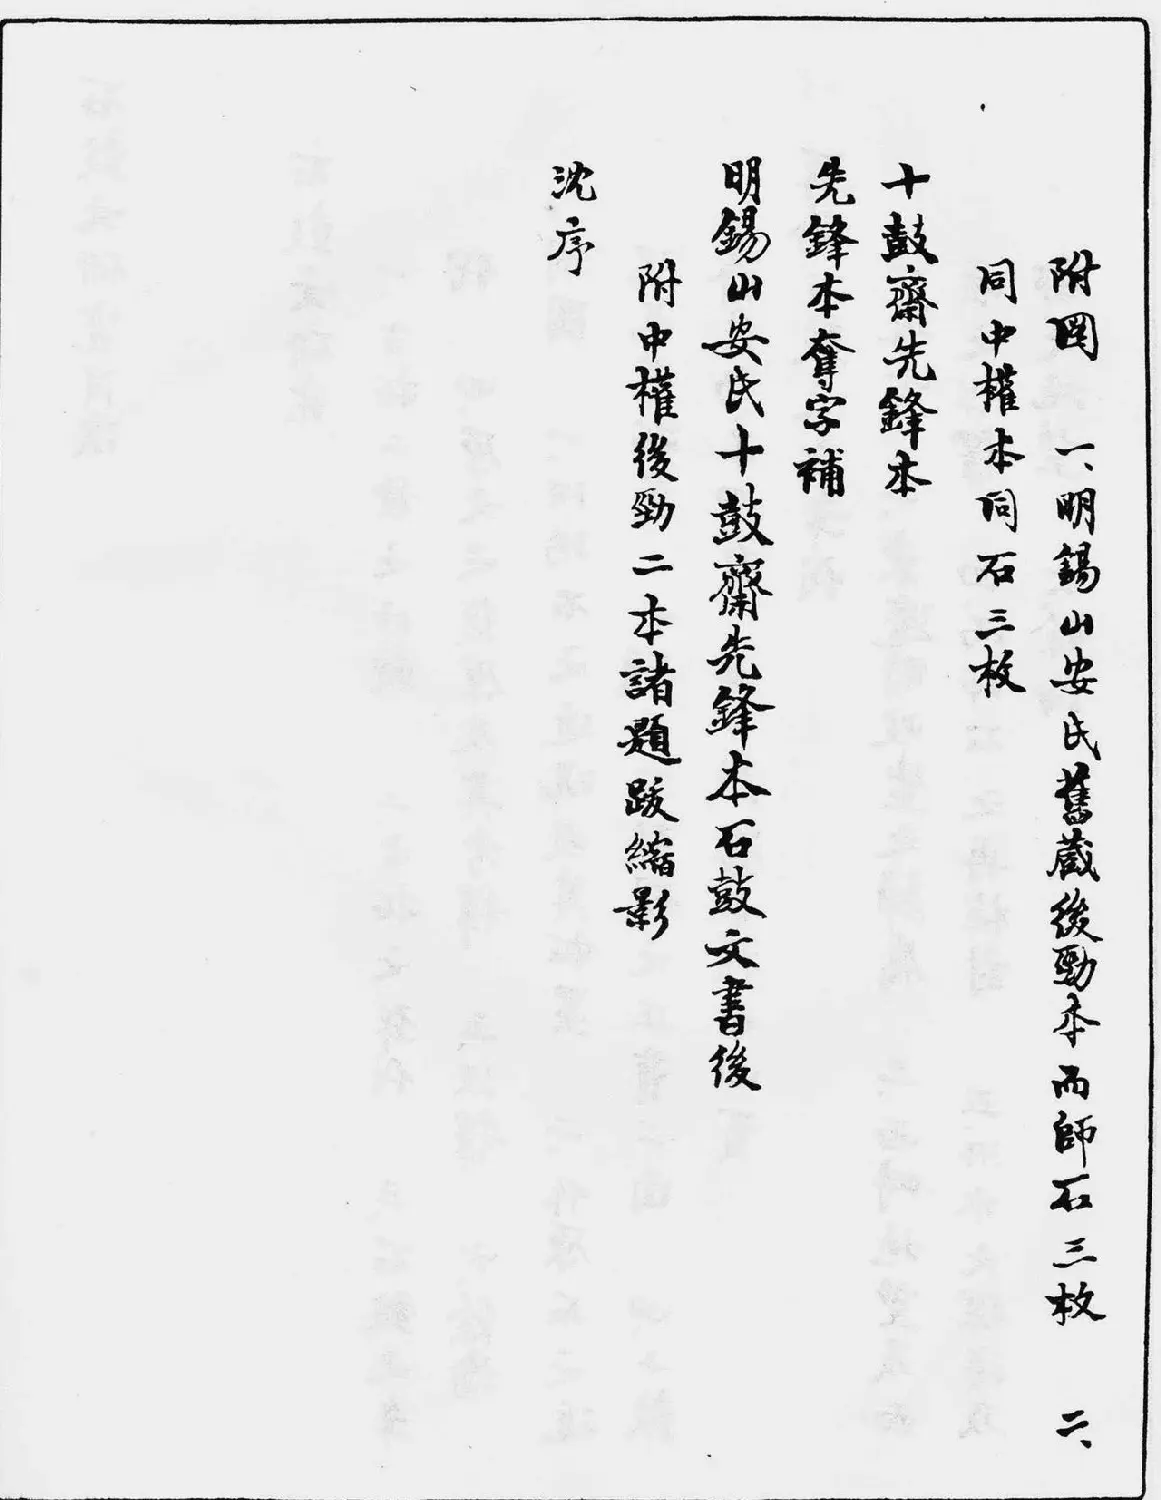 附図 一、明錫山安氏舊蔵後勁本而師石三枚 二、
同中權本同石三枚
十鼓齋先鋒本
先鋒本奪字補
明錫山安氏十鼓齋先鋒本石鼓文書後
附中權後勁二本諸題跋縮影
沈序